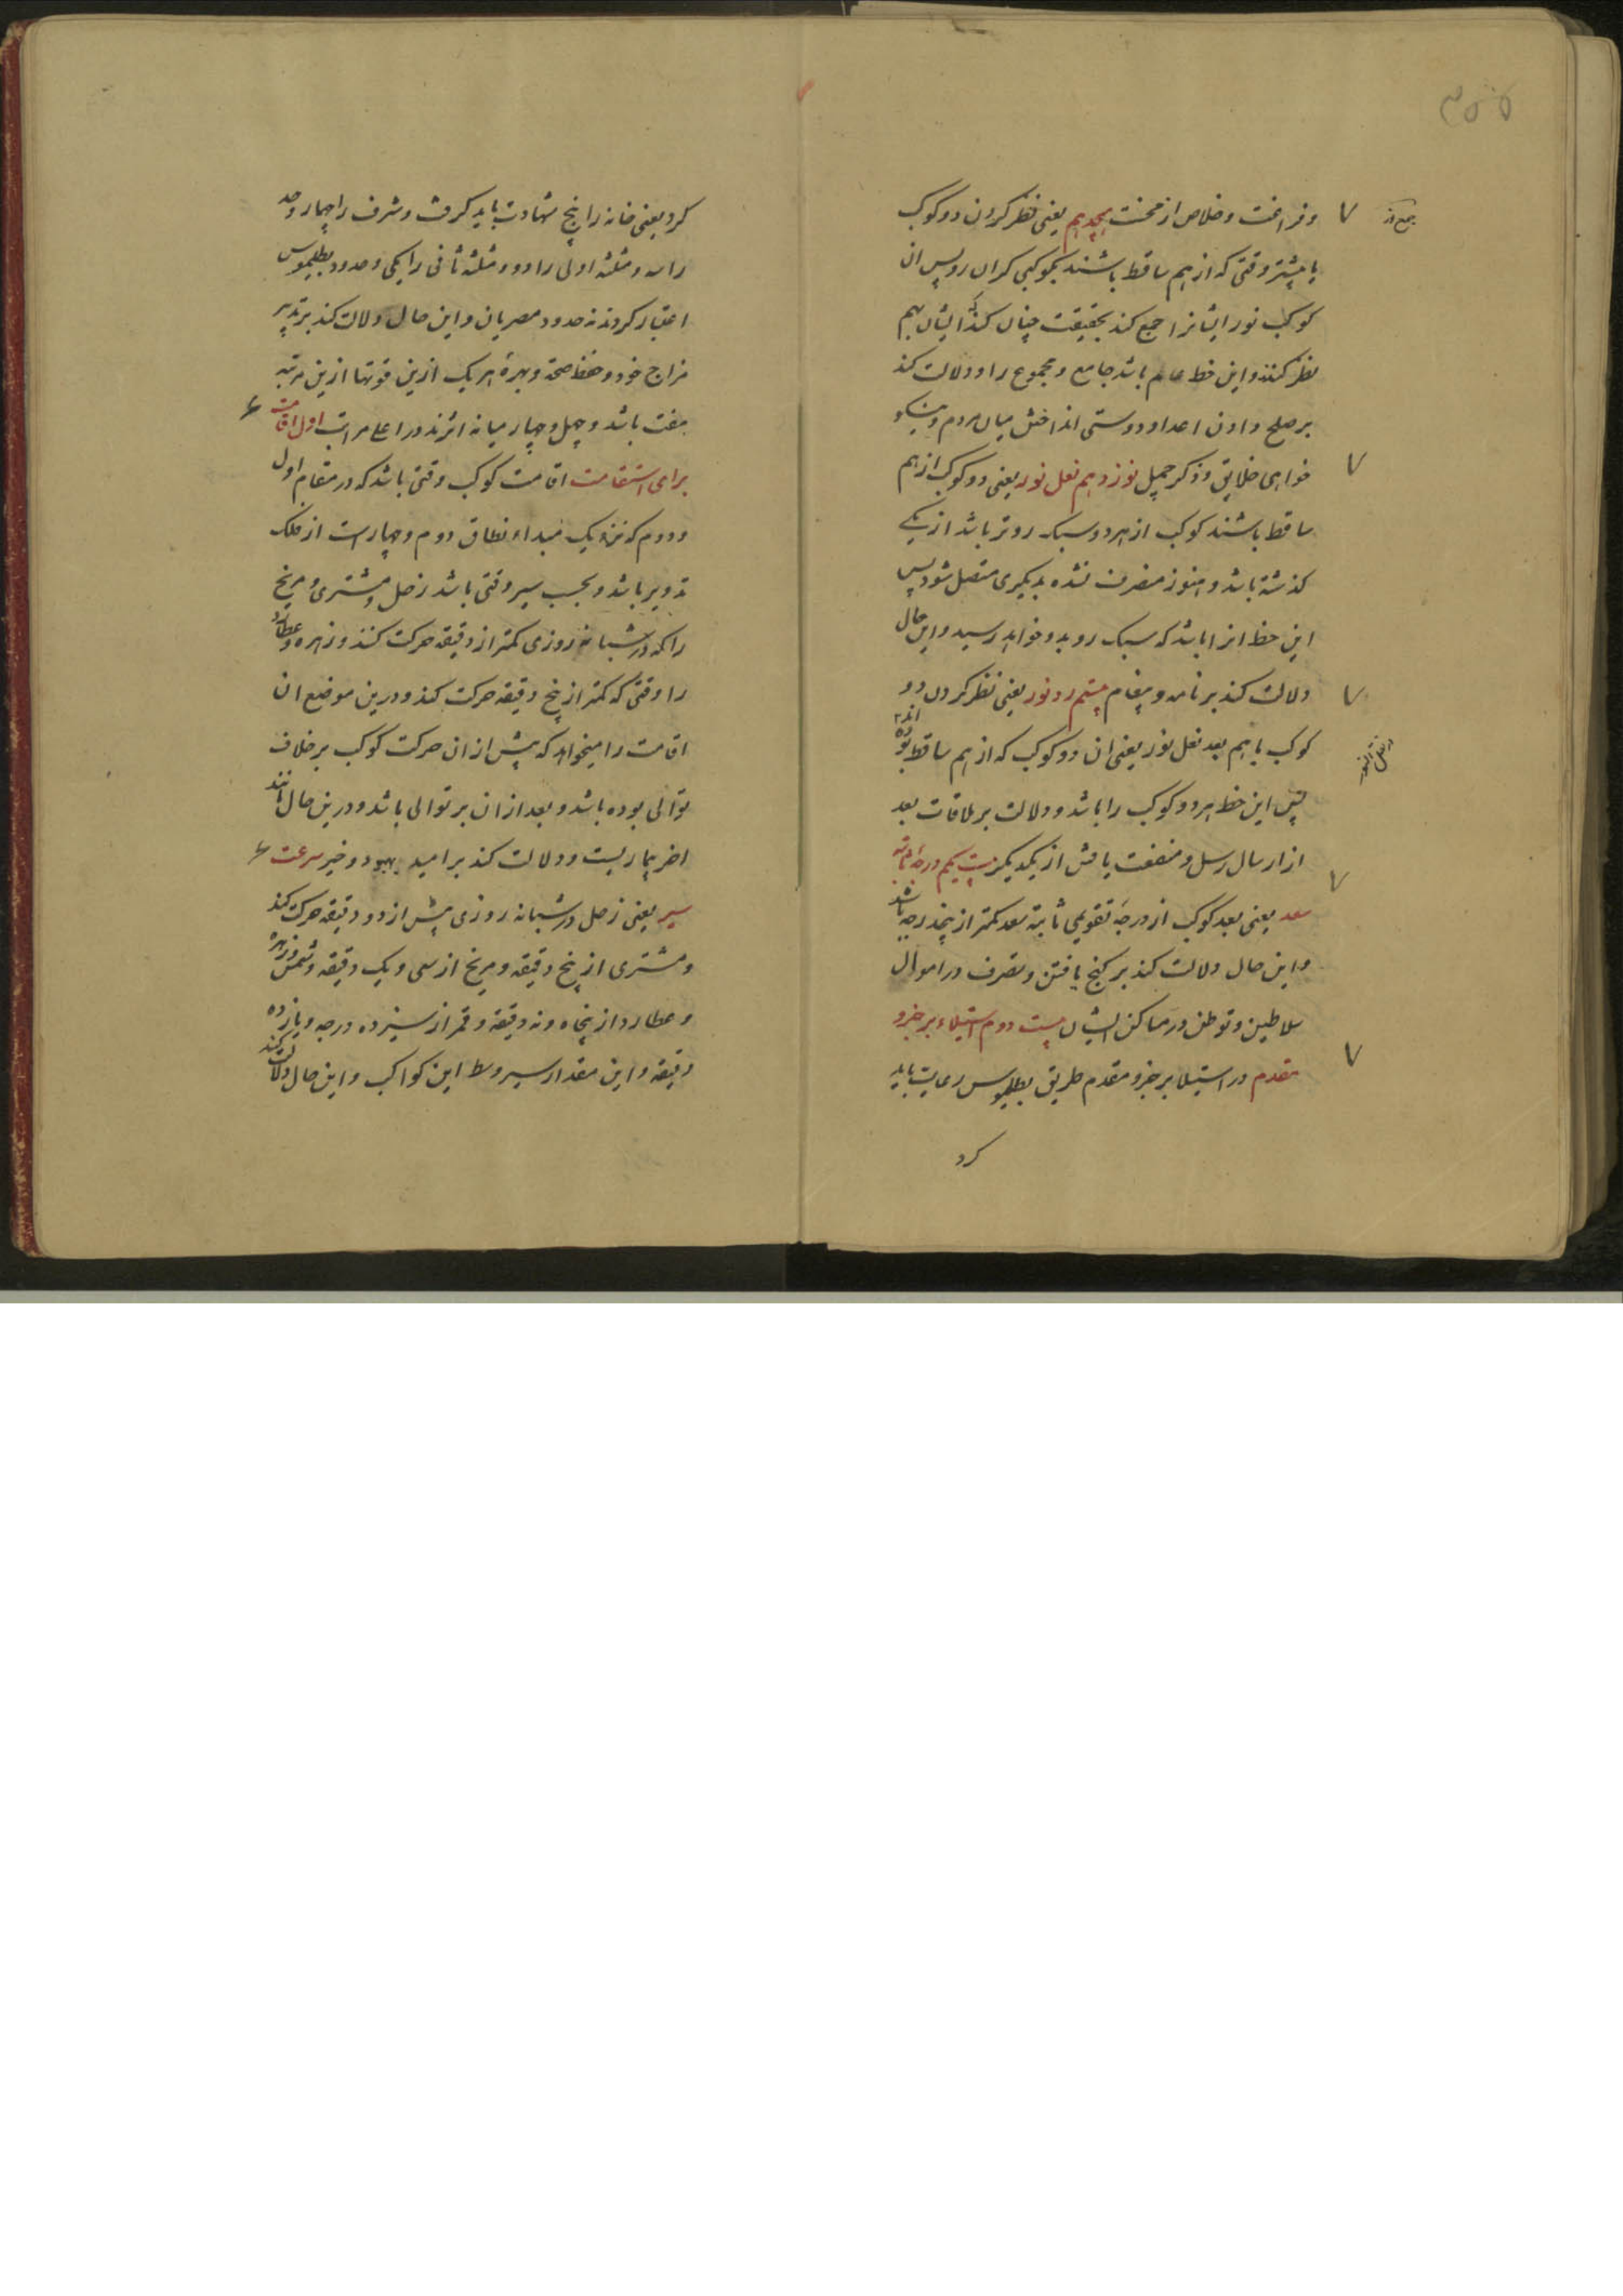 ۳۵۵
جمع نور
و فراغت و خلاص از محنت هجدهم یعنی نظر کردن دو کوکب
یا بیشتر وقتی که از هم ساقط باشند بکوکبی کران رو پس ان
کوکب نور ایشانرا جمع کند بحقیقت چنان کند که ایشان بهم
نظر کنند و این حظ عام باشد جامع و مجموع را و دلالت کند
بر صلح دادن اعدا و دوستی انداختن میان مردم و نیکو
خواهی خلایق و ذکر جمیل نوزدهم نقل نور یعنی دو کوکب از هم
ساقط باشند کوکب از هر دو سبک روتر باشد از یکی
کذشته باشد و هنوز منصرف نشده بدیکری متصل شود پس
این حظ انرا باشد که سبک رو بدو خواهد رسید و این حال
دلالت کند بر نامه و پیغام بیستم رد نور یعنی نظر کردن دو
کوکب با هم بعد نقل نور یعنی ان دو کوکب که از هم ساقط بوده اند
پس این حظ هر دو کوکب را باشد و دلالت بر ملاقات بعد
از ارسال رسل و منفعت یافتن از یکدیکر بیست یکم درجه ثابته
سعد یعنی بعد کوکب از درجه تقویمی ثابته سعد کمتر از پنجدرجه باشد
و این حال دلالت کند بر کنج یافتن و تصرف در اموال
سلاطین و توطن در مساکن ایشان بیست دوم استیلاء بر جزو
مقدم در استیلا بر جزو مقدم طریق بطلیموس رعایت باید
کرد
کرد یعنی خانه را پنج شهادت باید کرفت و شرف را چهار و حد
را سه و مثلثه اولی را دو و مثلثه ثانی را یکی و حدود بطلیموس
اعتبار کردند نه حدود مصریان و این حال دلالت کند بر تدبیر
مزاج خود و حفظ صحة و بهرهٔ هر یک ازین قوتها ازین مرتبه
هفت باشد و چهل و چهار میانه اثرند در اعلی مراتب اول اقامت
برای استقامت اقامت کوکب وقتی باشد که در مقام اول
و دوم که نزدیک مبداء نطاق دوم و چهارست از فلک
تدویر باشد و بحسب سیر وقتی باشد زحل و مشتری و مریخ
را که در شبانه روزی کمتر از دقیقه حرکت کنند و زهره و عطارد
را وقتی که کمتر از پنج دقیقه حرکت کند و درین موضع ان
اقامت را میخواهد که پیش از ان حرکت کوکب بر خلاف
توالی بوده باشد و بعد از ان بر توالی باشد و درین حال مانند
اخر بیماریست و دلالت کند بر امید بهبود و خیر سرعت
سیر یعنی زحل در شبانه روزی بیش از دو دقیقه حرکت کند
و مشتری از پنج دقیقه و مریخ از سی و یک دقیقه و شمس و زهره
و عطارد از پنجاه و نه دقیقه و قمر از سیزده درجه و یازده
دقیقه و این مقدار سیر وسط این کواکب و این حال دلالت کند